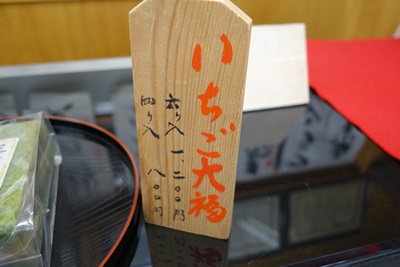 いちご大福
六ヶ入 一、二〇〇円
四ヶ入 八〇〇円